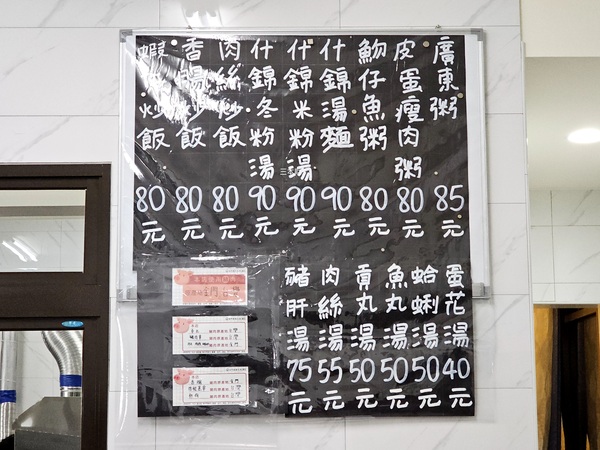 廣東粥 85元
皮蛋瘦肉粥 80元
魩仔魚粥 80元
什錦湯麵 90元
什錦米粉湯 90元
什錦冬粉湯 90元
肉絲炒飯 80元
香腸炒飯 80元
蝦仁炒飯 80元
蛋花湯 40元
蛤蜊湯 50元
魚丸湯 50元
貢丸湯 50元
肉絲湯 55元
豬肝湯 75元